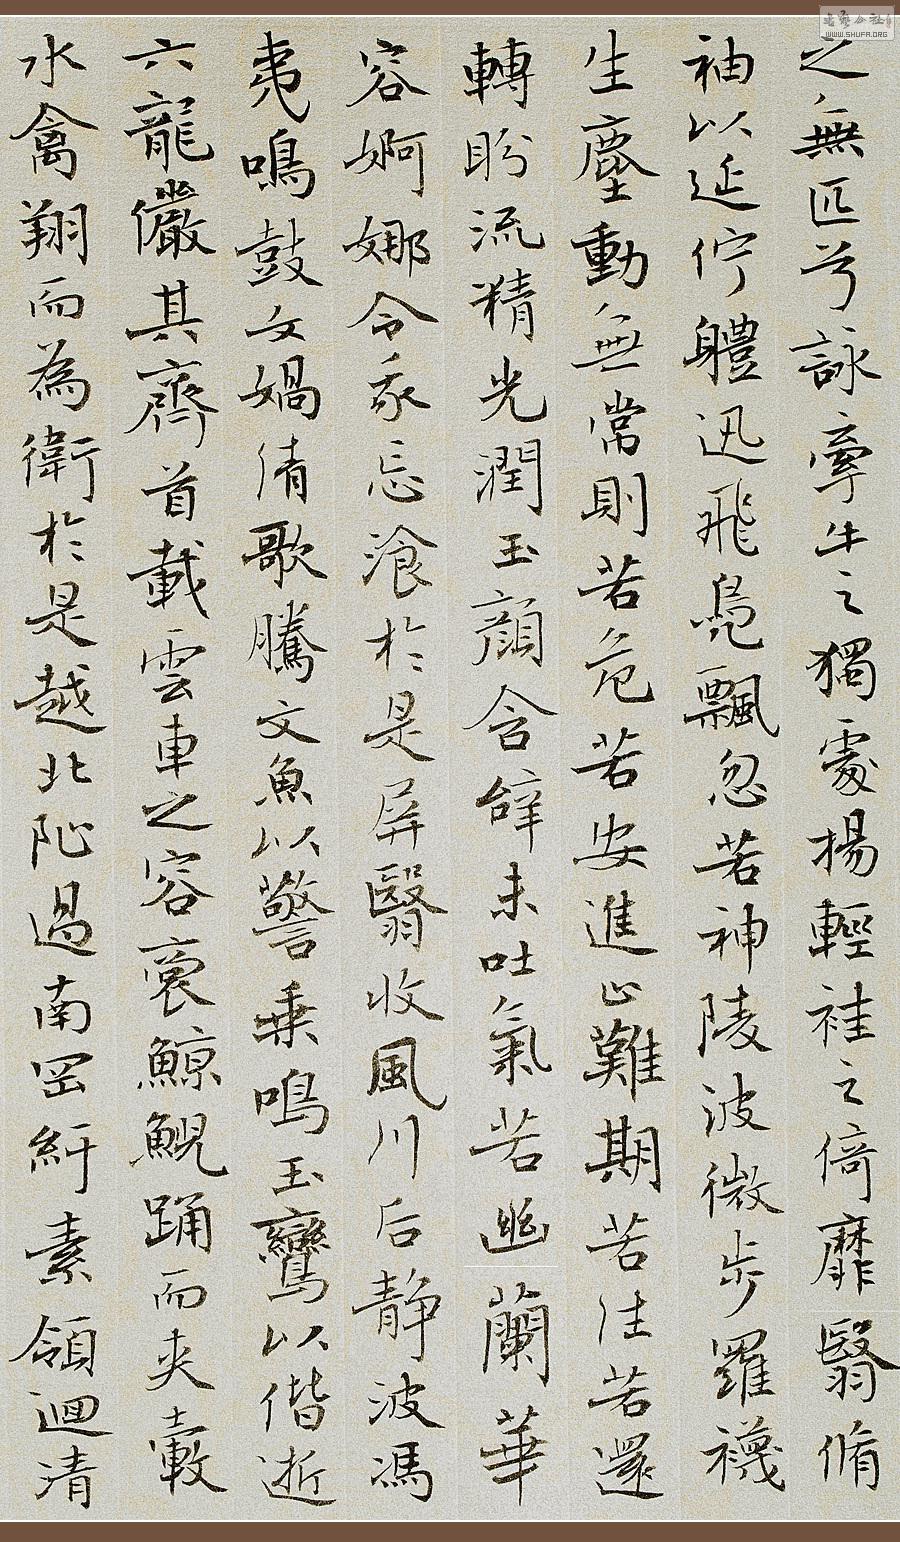 之無匹兮詠牽牛之獨處揚輕袿之倚靡翳脩
袖以延佇體迅飛鳧飄忽若神陵波微步羅襪
生塵動無常則若危若安進止難期若往若還
轉盼流精光潤玉顏含辭未吐氣若幽蘭華
容婀娜令我忘飡於是屏翳收風川后静波馮
夷鳴鼓女媧清歌騰文魚以警乗鳴玉鸞以偕逝
六龍儼其齊首載雲車之容裔鯨鯢踊而夾轂
水禽翔而為衛於是越北沚過南岡紆素領迴清
WWW.SHUFA.ORG